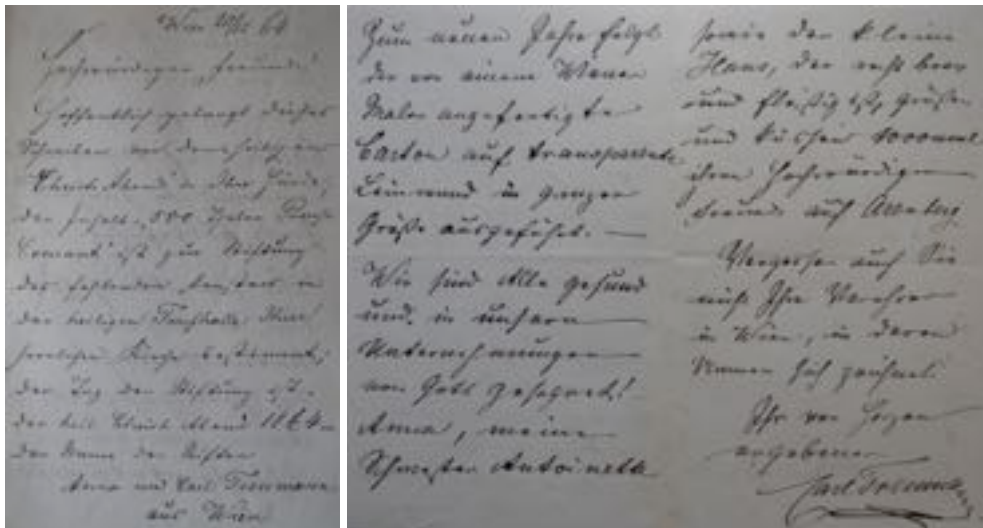 Wien 64
Hochwürdiger Freund!
Hoffentlich gelangt dieses
Schreiben vor dem heiligen
Christ Abend in Ihre Hände;
der Inhalt, 500
ist zur Stiftung
des fehlenden Fensters in
der heiligen Ihrer
herrlichen Kirche bestimmt;
der Tag der Stiftung ist
der heil Christ Abend 1864
der Name der Stifter
Anna und Carl Treumann
aus Wien
Zum neuen Jahre folgt
der von einem Wiener
Maler angefertigte
Carton auf transparente
Leinwand in ganzer
Größe ausgeführt. —
Wir sind Alle gesund
und in unsern
Unternehmungen
von Gott gesegnet!
Anna, meine
Schwester Antoinette
sowie der kleine
Hans, der recht brav
und fleißig ist, grüßen
und küssen 1000mal
ihren hochwürdigen
Freund auf
Vergessen auch Sie
nicht Ihre Verehrer
in Wien, in deren
Namen sich zeichnet
Ihr von Herzen
ergebener
Carl Treumann